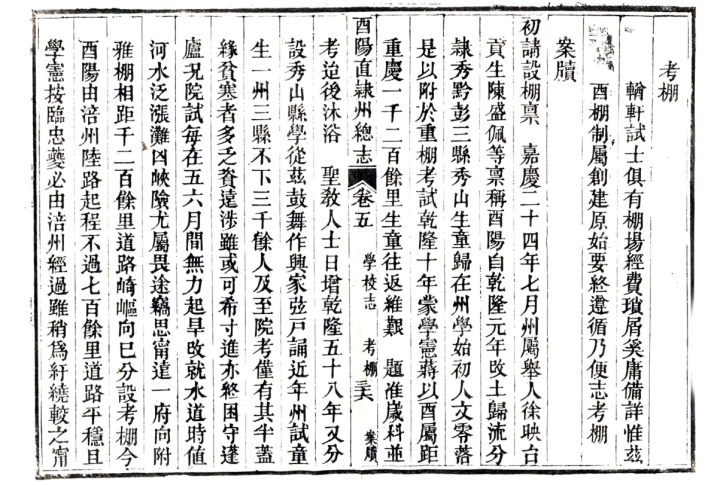 考棚
輶軒試士俱有棚場經費瑣屑奚庸備詳惟茲
酉棚制屬創建原始要終遵循乃便志考棚
案牘
初請設棚稟 嘉慶二十四年七月州屬舉人徐映台
貢生陳盛佩等稟稱酉陽自乾隆元年改土歸流分
隸秀黔彭三縣秀山生童歸在州學始初人文零落
是以附於重棚考試乾隆十年蒙學憲蔣以酉屬距
重慶一千二百餘里生童往返維艱 題准歲科並
酉陽直隸州總志 卷五 學校志 考棚 三六 案牘
考迨後沐浴 聖教人士日增乾隆五十八年又分
設秀山縣學從茲鼓舞作興家弦戸誦近年州試童
生一州三縣不下三千餘人及至院考僅有其半蓋
緣貧寒者多乏資遠涉雖或可希寸進亦終困守蓬
廬況院試每在五六月間無力起旱改就水道時值
河水泛漲灘凶峽險尤屬畏途竊思甯遠一府向附
雅棚相距千二百餘里道路崎嶇向巳分設考棚今
酉陽由涪州陸路起程不過七百餘里道路平穩且
學憲按臨忠夔必由涪州經過雖稍爲紆繞較之甯